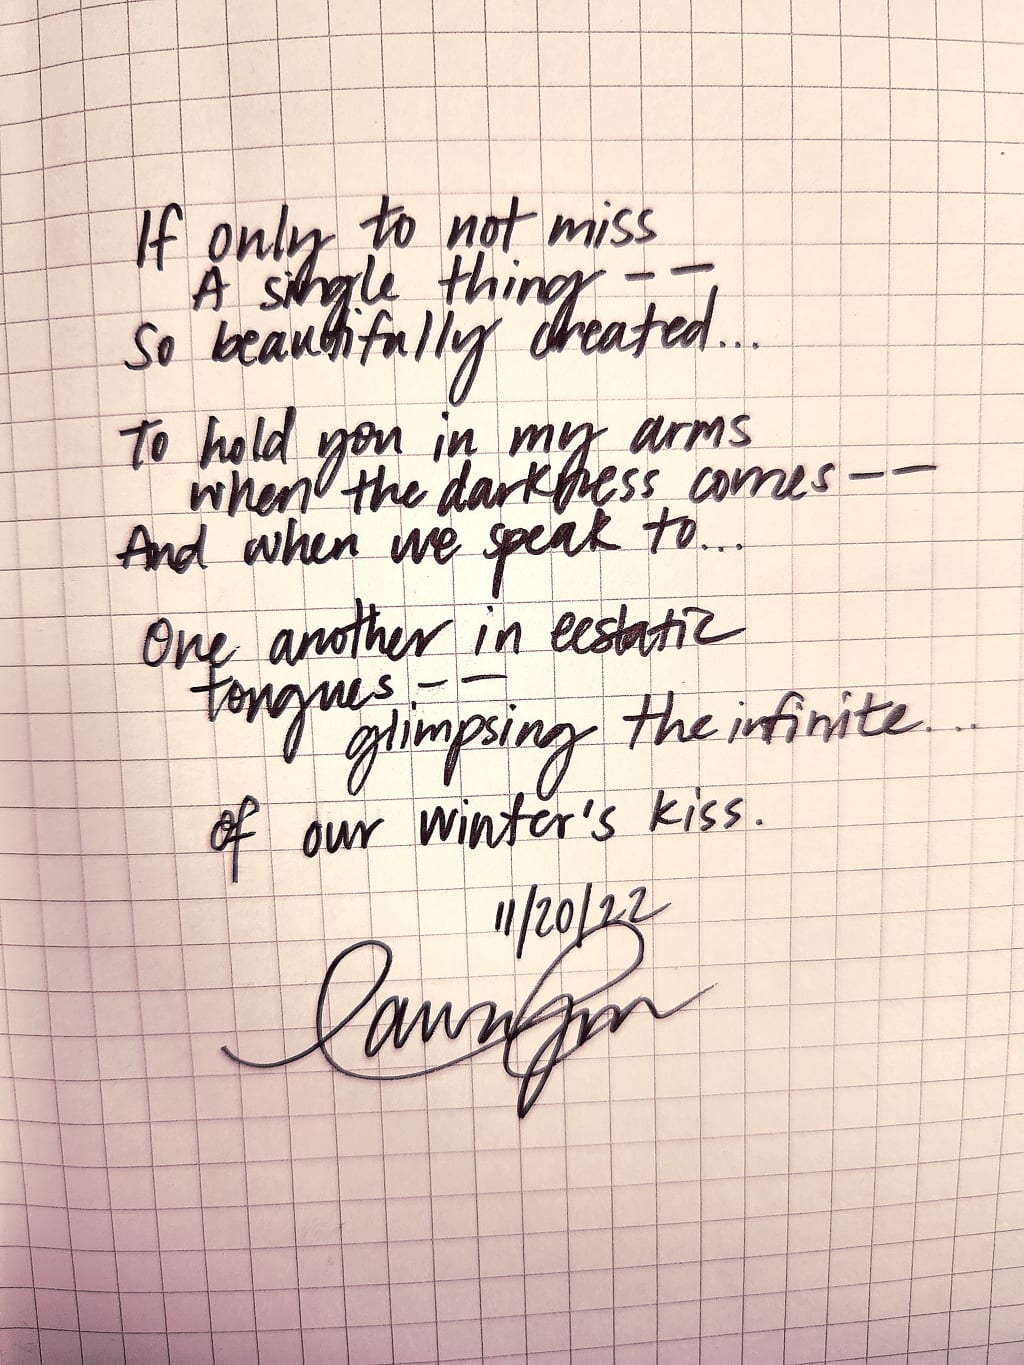 If only to not miss
A single thing --
So beautifully created...
To hold you in my arms
when the darkness comes --
And when we speak to...
One another in ecstatic
tongues --
glimpsing the infinite...
of our winter's kiss.
11/20/22